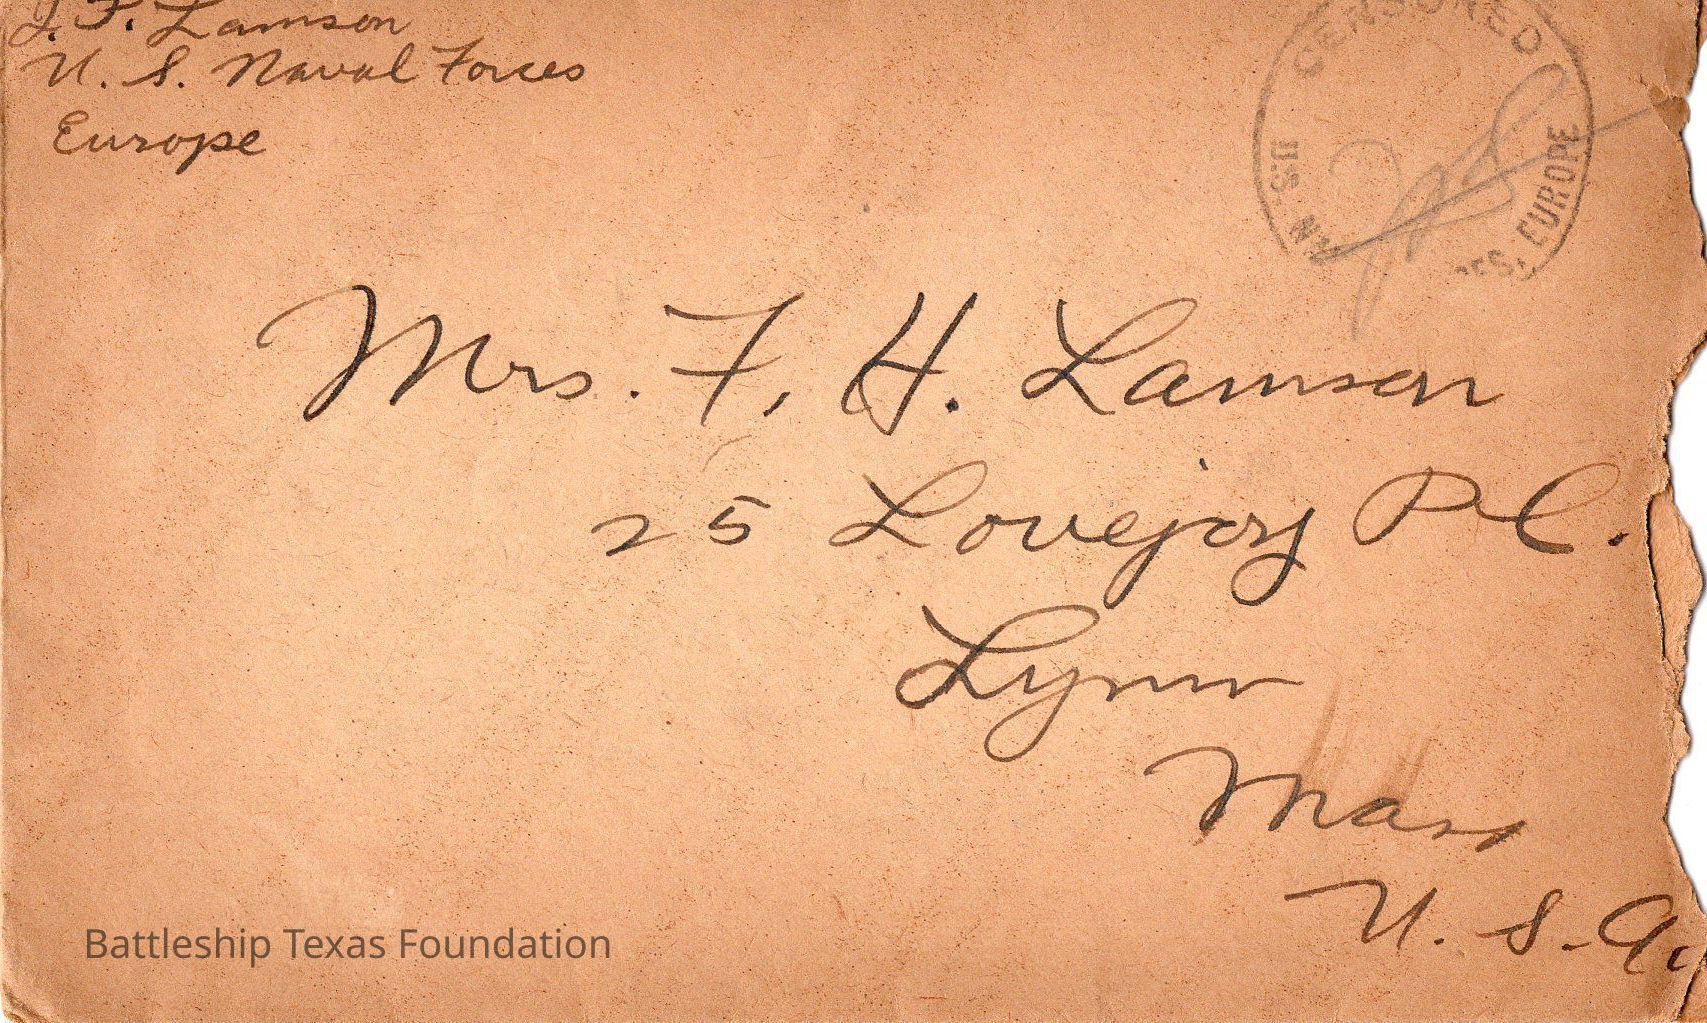 F. Lamson
U. S. Naval Forces
Europe
CENSORED
U.S. EUROPE
Mrs. F. H. Lamson
25 Lovejoy Pl.
Lynn
Mass
U. S. A
Battleship Texas Foundation